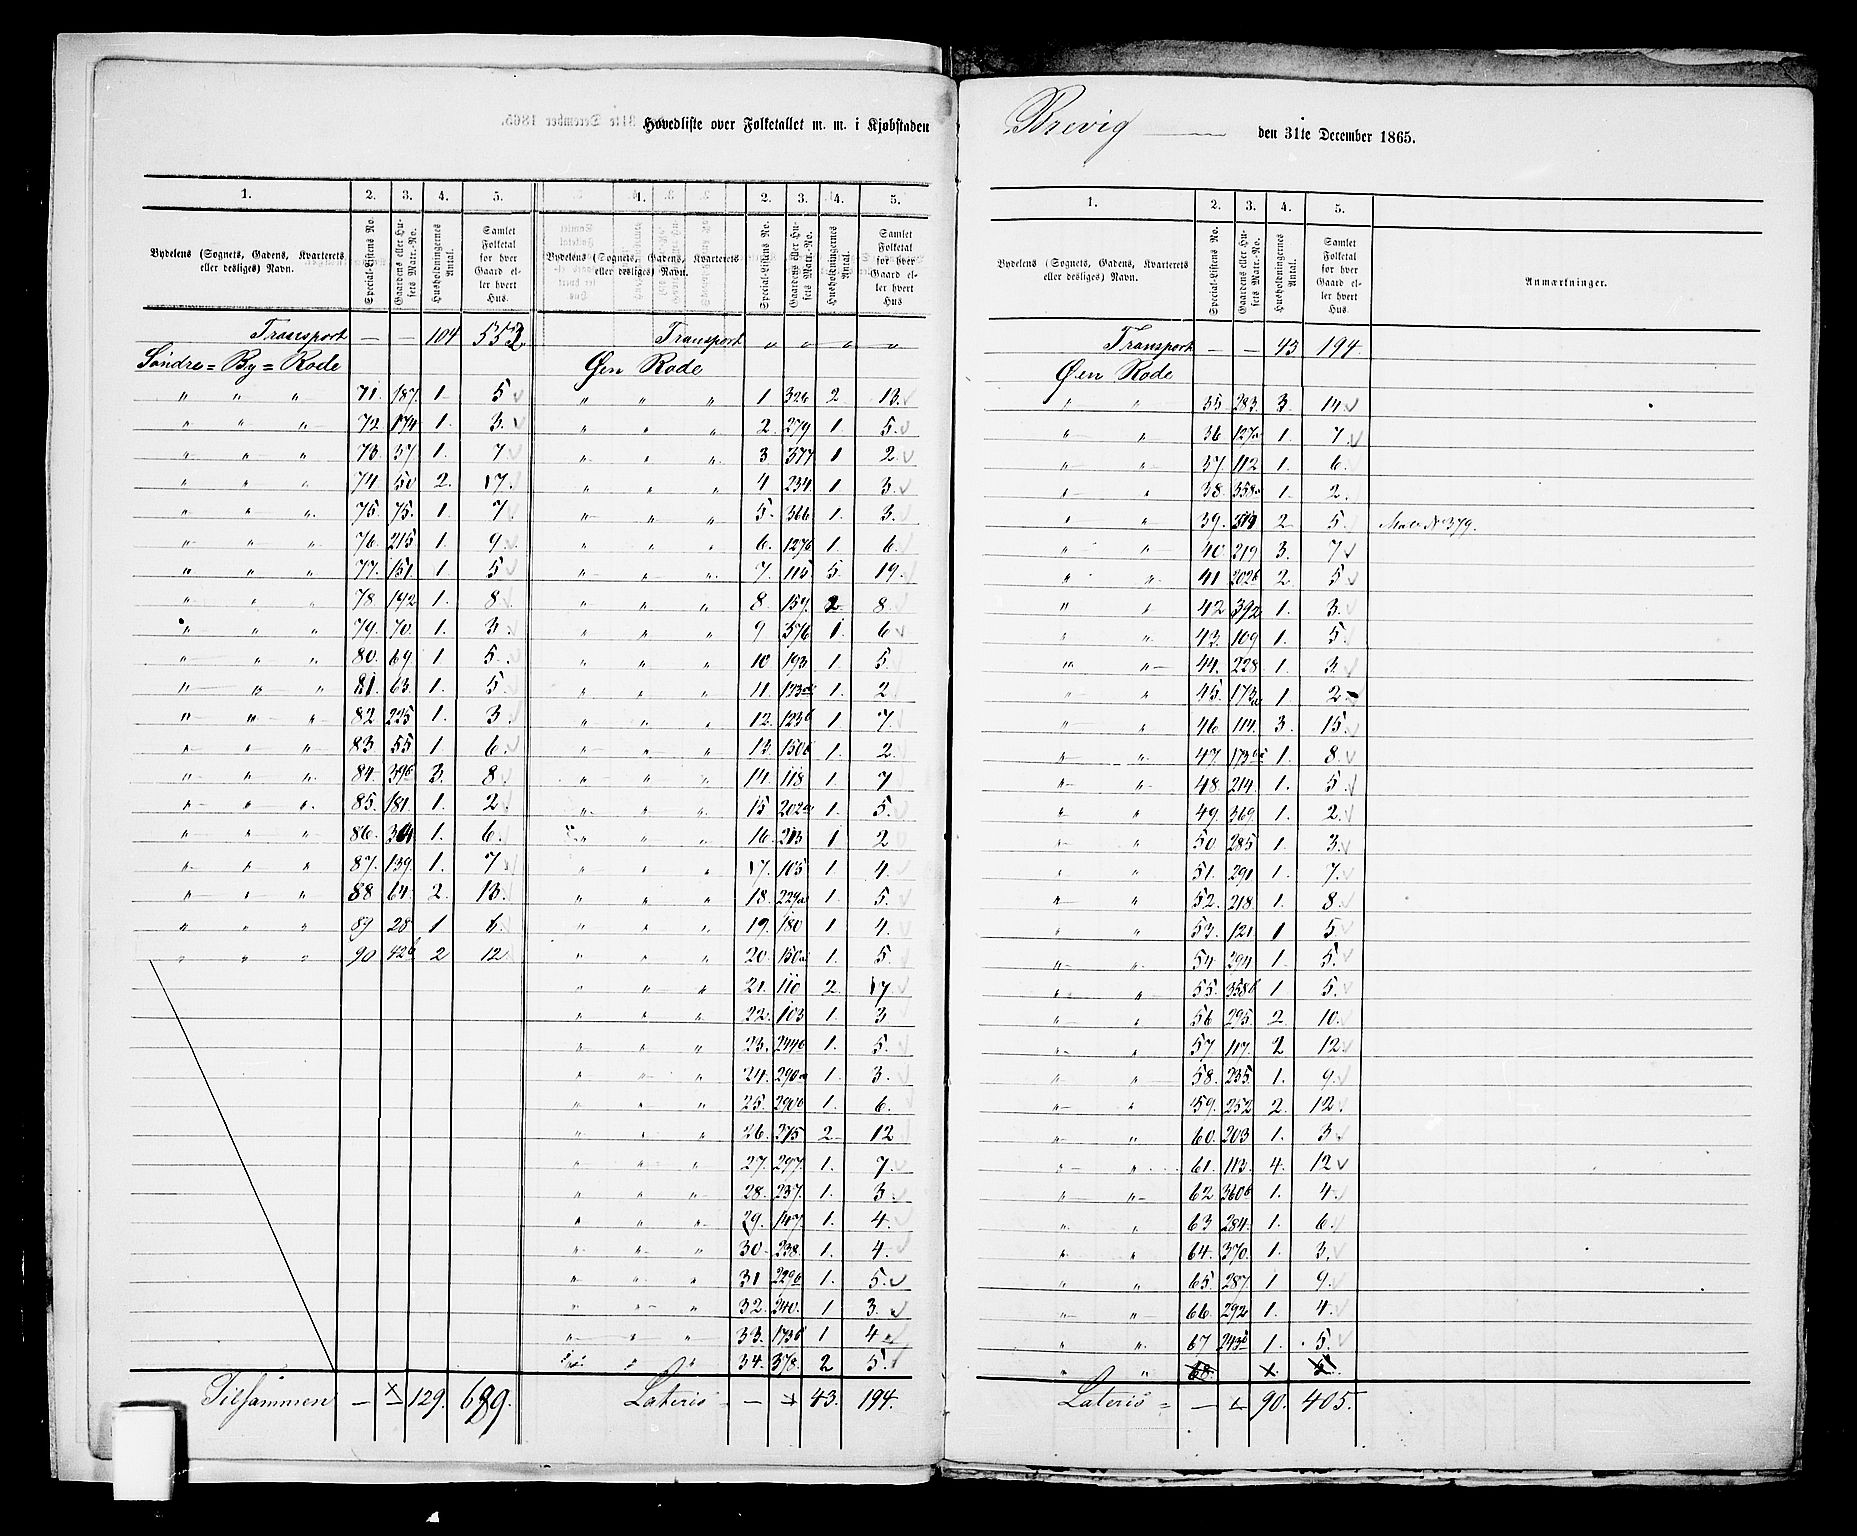 Hovedliste over Folketallet m. m. i Kjøbstaden Brevig den 31te December 1865.
1. 2. 3. 4. 5. 1. 2. 3. 4. 5.
Bydelens (Sognets, Gadens, Kvarterets eller desliges) Navn. Special-Listens No. Gaardens eller Husets Matr.-No. Husholdningernes Antal. Samlet Folketal for hver Gaard eller hvert Hus. Bydelens (Sognets, Gadens, Kvarterets eller desliges) Navn. Special-Listens No. Gaardens eller Husets Matr.-No. Husholdningernes Antal. Samlet Folketal for hver Gaard eller hvert Hus
Transport — — 104 552 Transport " " " "
Söndre=By=Rode Øen Rode
" " " 71. 187. 1. 5 " " " 1 326 2 13.
" " " 72 174 1. 3. " " " 2. 279 1. 5.
" " " 73. 37. 1. 7 " " " 3 377 1 2.
" " " 74. 50 2. 17. " " " 4 234. 1 3.
" " " 75. 75. 1. 7. " " " 5. 366 1. 3.
" " " 76. 215 1. 9. " " " 6. 127b 1. 6.
" " " 77. 151. 1. 5 " " " 7. 115 5. 19.
" " " 78. 192 1. 8. " " " 8. 159. 2 8.
" " " 79. 70. 1. 3. " " " 9 376 1. 6
" " " 80. 69. 1 5. " " " 10. 193 1. 5.
" " " 81. 63. 1. 5. " " " 11. 123a 1. 2
" " " 82 225 1. 3. " " " 12. 123b 1 7.
" " " 83. 55 1 6. " " " 13. 150b 1. 2
" " " 84. 396 3. 8 " " " 14. 118 1. 7
" " " 85. 181. 1. 2. " " " 15 202a 1. 5.
" " " 86. 1. 6. " " " 16. 213 1 2
" " " 87. 139. 1. 7 " " " 17. 105 1 4.
" " " 88 64. 2. 13. " " " 18. 229a 1. 5.
" " " 89 28 1 6. " " " 19. 180 1 4.
" " " 90 42b 2 12 " " " 20. 150a 1. 5
" " " 21. 110 2. 17
" " " 22. 103 1. 3
" " " 23. 244b 1. 5.
" " " 24. 290a 1. 3.
" " " 25. 290b 1. 6.
" " " 26. 275 2 12
" " " 27. 297. 1. 7.
" " " 28. 237. 1. 3
" " " 29. 147. 1. 4.
" " " 30. 238. 1. 4.
" " " 31 229b 1. 5.
" " " 32. 240. 1 3.
" " " 33. 173b 1 4
" " " 34. 378. 2 5
Tilsammen — 129. 689. Lateris — 43. 194.
1. 2. 3. 4. 5.
Bydelens (Sognets, Gadens, Kvarterets eller desliges) Navn. Special-Listens No. Gaardens eller Husets Matr.-No. Husholdningernes Antal. Samlet Folketal for hver Gaard eller hvert Hus. Anmærkninger.
Transport — — 43 194.
Øen Rode
" " 35. 283. 3. 14
" " 36 127a 1. 7.
" " 37. 112 1. 6.
" " 38. 358a 1. 2.
" " 39. 2 5. Matr. No 379.
" " 40. 219. 3. 7
" " 41. 202b 2. 5
" " 42 392 1. 3.
" " 43. 109 1. 5.
" " 44. 228. 1. 3.
" " 45. 173a 1 2
" " 46. 114. 3. 15.
" " 47. 1. 8.
" " 48. 214. 1. 5.
" " 49. 369. 1. 2.
" " 50 285 1. 3.
" " 51. 291 1. 7.
" " 52. 218. 1. 8.
" " 53. 121 1 5
" " 54 294 1. 5.
" " 55. 358b 1 5.
" " 56 295. 2. 10.
" " 57 117. 2 12.
" " 58. 235. 1. 9.
" " 59. 252 2. 12.
" " 60. 203 1. 3
" " 61. 113. 4. 12
" " 62 360b 1. 4.
" " 63 284. 1. 6.
" " 64. 370. 1. 3.
" " 65. 287. 1 9.
" " 66. 292 1. 4.
" " 67 243b 1. 5.
" " 68
Lateris = — 90. 405.